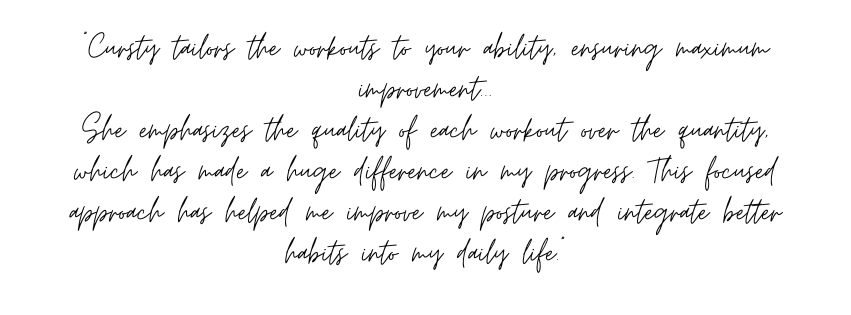 "Cursty tailors the workouts to your ability, ensuring maximum
improvement...
She emphasizes the quality of each workout over the quantity,
which has made a huge difference in my progress. This focused
approach has helped me improve my posture and integrate better
habits into my daily life."